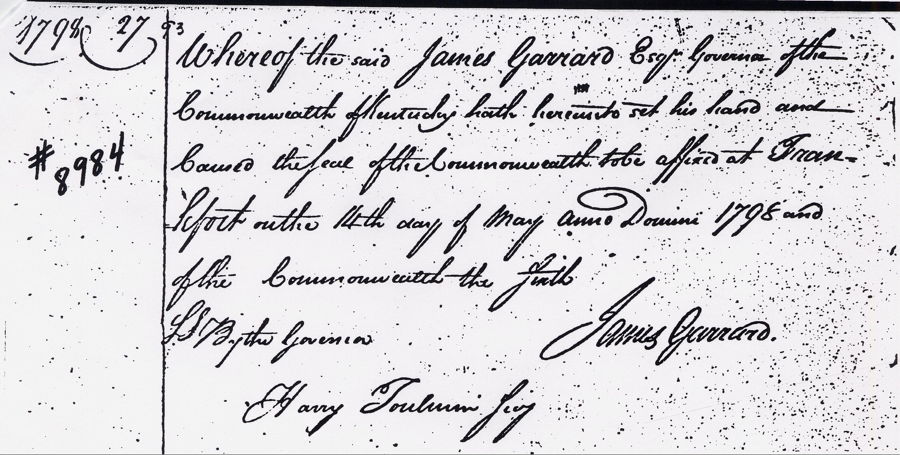 1798 27 93
Whereof the said James Garrard Esqr Governor of the
Commonwealth of Kentucky hath hereunto set his hand and
Caused the seal of the Commonwealth to be affixed at Fran=
kfort on the 14th day of May Anno Domini 1798 and
of the Commonwealth the Sixth
# 8984
LS By the Governor James Garrard.
Harry Toulmin Secy